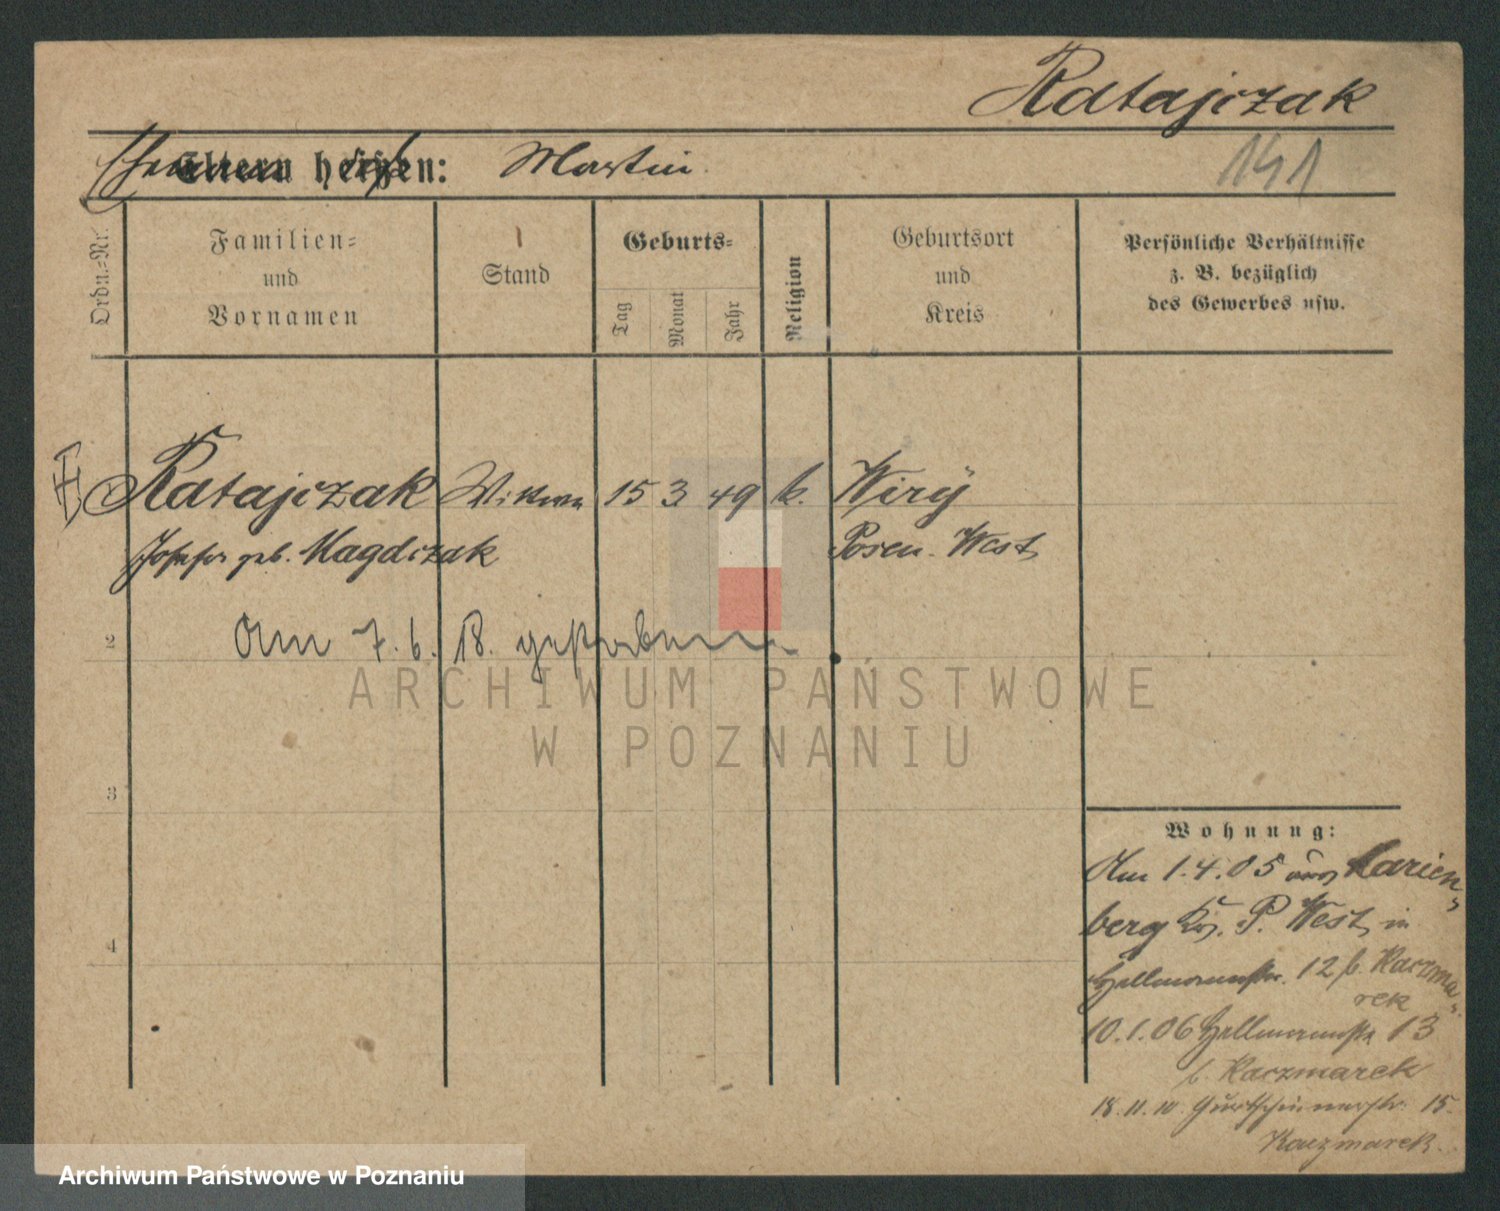 Ratajczak
Eltern heißen: Martin
141
Ordn.-Nr.
Familien-
und
Vornamen
Stand
Geburts-
Tag
Monat
Jahr
Religion
Geburtsort
und
Kreis
Persönliche Verhältnisse
z. B. bezüglich
des Gewerbes usw.
Ratajczak Wittwe 15 3 49 k. Wiry
Josefa geb. Magdczak Posen. West
2
Am 7. 6. 18. gestorben
ARCHIWUM PAŃSTWOWE
W POZNANIU
3
Wohnung:
Am 1.4.05 aus Marien
berg Kr. P. West, in
4
12 b. Kaczma
rek
10.1.06 13
b. Kaczmarek
18.11.10 Gurtschinerstr. 15.
Kaczmarek.
Archiwum Państwowe w Poznaniu